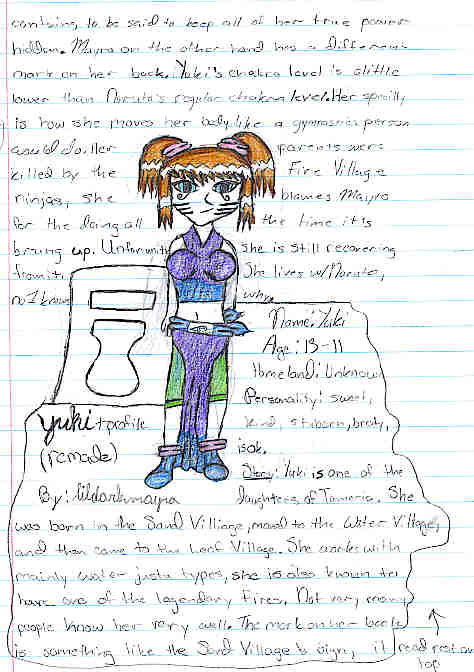 contains to be said to keep all of her true power
hidden. Mayra on the other hand has a different
mark on her back. Yuki's chakra level is alittle
lower than Noruto's regular chakra level. Her
is how she moves her body like a gymnastic person
would do. Her parents were
killed by the Fire Village
ninjas, she blames Mayra
for the doing all the time it's
brung up. Unfortunitly she is still recovering
from it. She lives w/ Noruto,
no 1 knows why.
Name: Yuki
Age: 13-11
Homeland: Unknown
Personality: sweet,
kind, stuborn, braty,
isok.
Yuki profile
(remade)
By: lildarkmayra
Story: Yuki is one of the
daughters of She
was born in the Sand Villiage, moved to the Water Village,
and then came to the Leaf Village. She works with
mainly water justu types, she is also known to
have one of the legendary fires. Not very many
people know her very well. The mark on her back
is something like the Sand Village's sign, it
read rest on
top